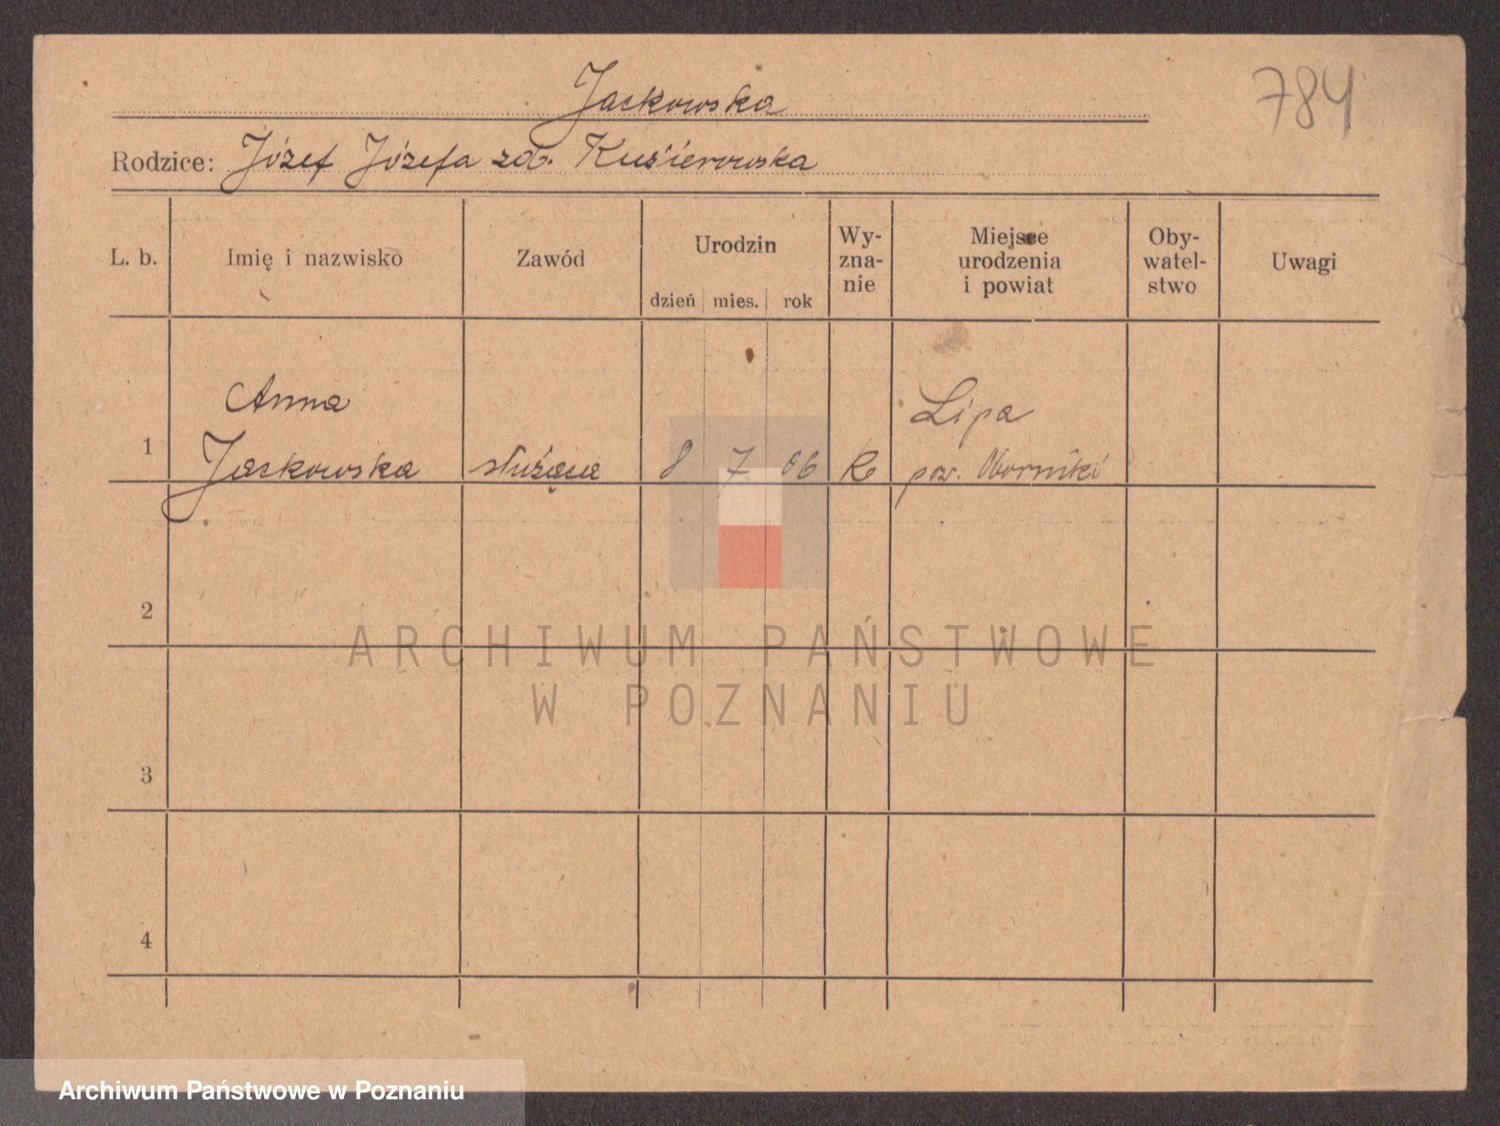 Jackowska
784
Rodzice: Józef Józefa zd. Kuśierowska
L. b.
Imię i nazwisko
Zawód
Urodzin
dzień mies. rok
Wy-
zna-
nie
Miejsce
urodzenia
i powiat
Oby-
watel-
stwo
Uwagi
1
Anna
Jackowska
służąca
8 7 06
Lipa
pow. Oborniki
2
3
4
ARCHIWUM PAŃSTWOWE
W POZNANIU
Archiwum Państwowe w Poznaniu